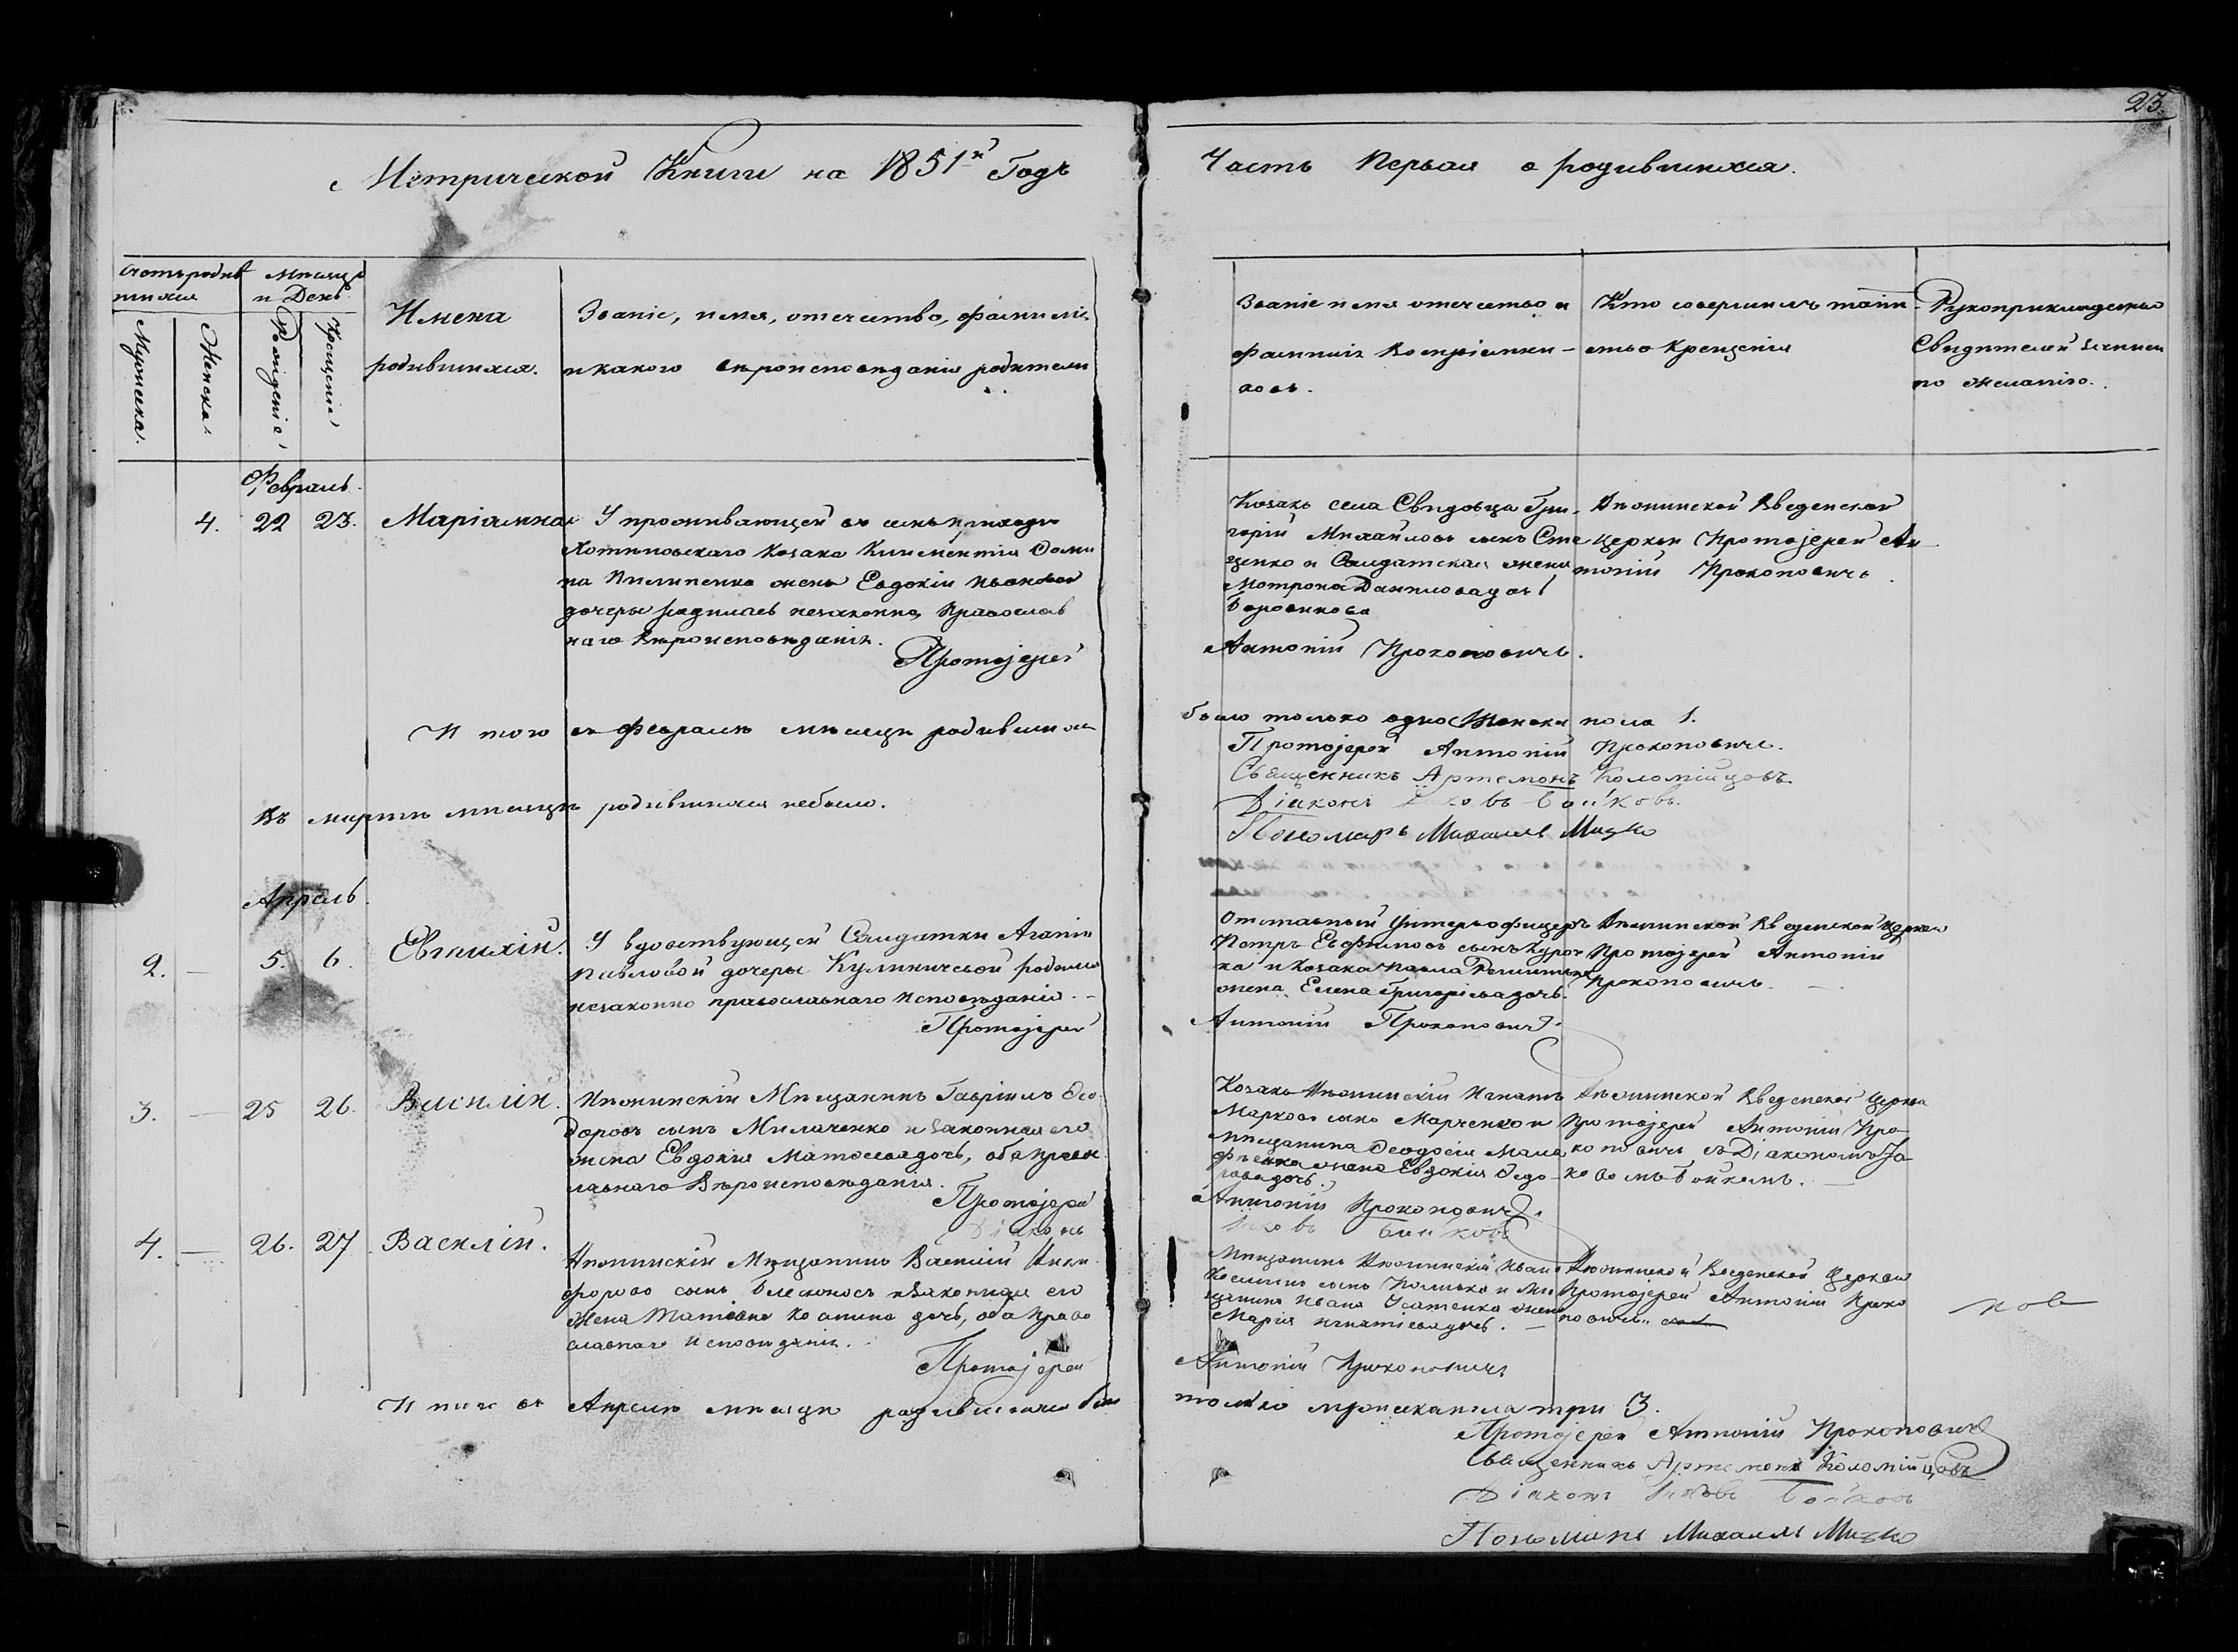 23.
Метрической Книги на 1851й Годъ
Часть Первая о родившихся.
Счетъ родив
шихся
Мѣсяцъ
и День
Мужеска.
Женска.
Рожденія
Крещенія
Имена
родившихся.
Званіе, имя, отечество, фамилія
и какого вѣроисповѣданія родители
Званіе имя отечество и
фамилія воспріемни-
ковъ.
Кто совершилъ таин-
ство Крещенія
Рукоприкладство
Свидѣтелей записи
по желанію.
Февраль.
4. 22 23. Маріамна
У проживающей въ семъ приходѣ
козака Климентія
на Пилипенка жены Евдокіи Ивановой
дочеры родилась незаконно, Православ
наго Вѣроисповѣданія.
Протоіерей
Козакъ села Свидовца Гри-
горій Михайловъ сынъ Сте
ценко и Солдатская жена
Мотрона Данилова дочь
Боровикова
Антоній Прокоповичъ.
Введенской
церкви Протоіерей Ан-
тоній Прокоповичъ.
И того въ Февралѣ мѣсяцѣ родившихся
было только одно Женска пола 1.
Протоіерей Антоній Прокоповичъ.
Священникъ Артемонъ Коломійцовъ
Діаконъ Яковъ Бойковъ.
Пономарь Михаилъ
Въ мартѣ мѣсяцѣ родившихся небыло.
Апрѣль.
2. — 5. 6. Евтихій.
У вдовствующей Солдатки Агапіи
Павловой дочеры Куличичевой родился
незаконно православнаго исповѣданія. —
Протоіерей
Отставный Унтерьофицеръ
Петръ Евфимовъ сынъ
ка и козака Павла
жена Елена Григоріева дочь.
Антоній Прокоповичъ.
Введенской Церкви
Протоіерей Антоній
Прокоповичъ. —
3. — 25 26. Василій.
Мѣщанинъ Гавріилъ Ѳео
доровъ сынъ Милаченко и законная его
жена Евдокія Матвѣева дочь, оба Право
славнаго Вѣроисповѣданія.
Протоіерей
Діаконъ
Козакъ Игнатъ
Марковъ сынъ Марченко и
мѣщанина Ѳеодосія Мала
фѣенка жена Евдокія Ѳедо-
рова дочь.
Антоній Прокоповичъ.
Яковъ Бойковъ
Введенской Церкви
Протоіерей Антоній Про-
коповичъ съ Діакономъ Іа-
ковомъ Бойкомъ. —
4. — 26. 27 Василій.
Мѣщанинъ Василій Ники
форовъ сынъ Белоконосъ и Законная его
жена Татіана Костина дочь, оба Право
славнаго Исповѣданія.
Протоіерей
Мѣщанинъ Иванъ
сынъ и Мѣ
щанина Ивана Усатенка жена
Марія Игнатіева дочь. —
Антоній Прокоповичъ
Введенской Церкви
Протоіерей Антоній Проко
повичъ.
ковъ
И того въ Апрѣлѣ мѣсяцѣ родившихся было
только мужеска пола три 3.
Протоіерей Антоній Прокоповичъ
Священникъ Артемонъ Коломійцовъ
Діаконъ Яковъ Бойковъ
Пономарь Михаилъ